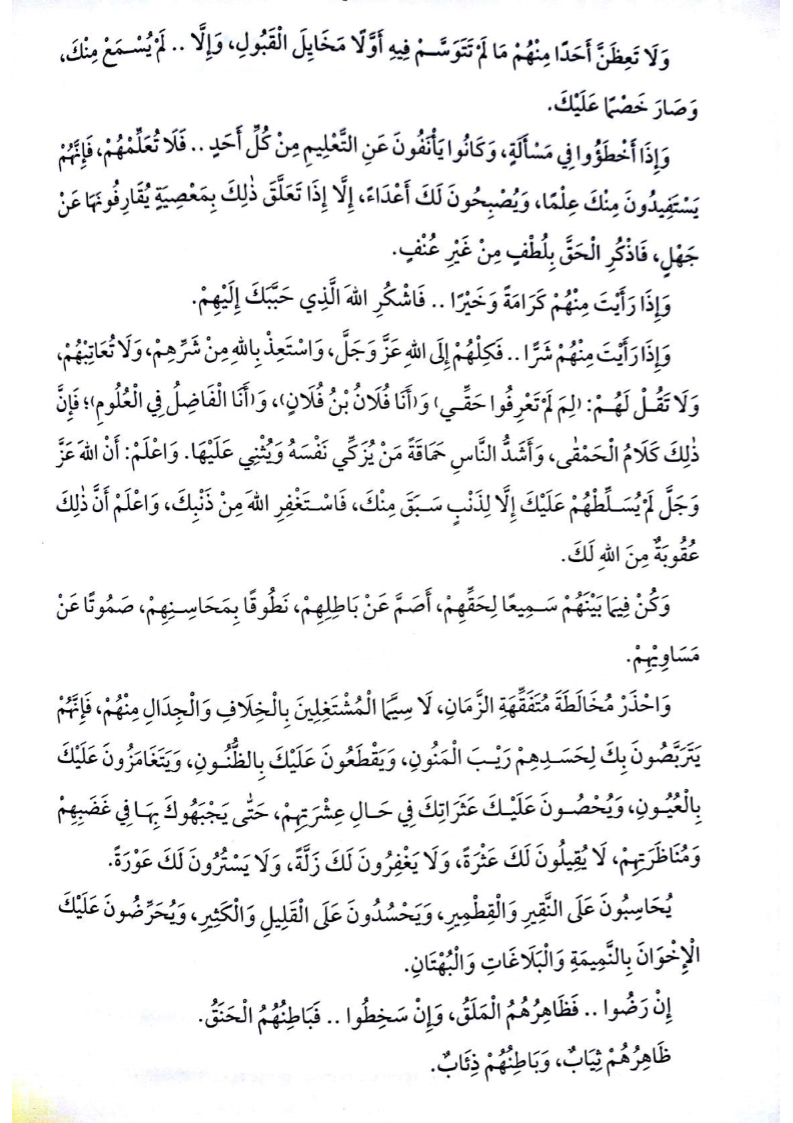 وَلَا تَعِظَنَّ أَحَدًا مِنْهُمْ مَا لَمْ تَتَوَسَّمْ فِيهِ أَوَّلًا مَخَايِلَ الْقَبُولِ، وَإِلَّا .. لَمْ يُسْمَعْ مِنْكَ،
وَصَارَ خَصْمًا عَلَيْكَ.
وَإِذَا أَخْطَؤُوا فِي مَسْأَلَةٍ، وَكَانُوا يَأْنَفُونَ عَنِ التَّعْلِيمِ مِنْ كُلِّ أَحَدٍ .. فَلَا تُعَلِّمْهُمْ، فَإِنَّهُمْ
يَسْتَفِيدُونَ مِنْكَ عِلْمًا، وَيُصْبِحُونَ لَكَ أَعْدَاءً، إِلَّا إِذَا تَعَلَّقَ ذٰلِكَ بِمَعْصِيَةٍ يُقَارِفُونَهَا عَنْ
جَهْلٍ، فَاذْكُرِ الْحَقَّ بِلُطْفٍ مِنْ غَيْرِ عُنْفٍ.
وَإِذَا رَأَيْتَ مِنْهُمْ كَرَامَةً وَخَيْرًا .. فَاشْكُرِ اللهَ الَّذِي حَبَّبَكَ إِلَيْهِمْ.
وَإِذَا رَأَيْتَ مِنْهُمْ شَرًّا .. فَكِلْهُمْ إِلَى اللهِ عَزَّ وَجَلَّ، وَاسْتَعِذْ بِاللهِ مِنْ شَرِّهِمْ، وَلَا تُعَاتِبْهُمْ،
وَلَا تَقُلْ لَهُمْ: (لِمَ لَمْ تَعْرِفُوا حَقِّي) وَ(أَنَا فُلَانُ بْنُ فُلَانٍ)، وَ(أَنَا الْفَاضِلُ فِي الْعُلُومِ)؛ فَإِنَّ
ذٰلِكَ كَلَامُ الْحَمْقٰى، وَأَشَدُّ النَّاسِ حَمَاقَةً مَنْ يُزَكِّي نَفْسَهُ وَيُثْنِي عَلَيْهَا. وَاعْلَمْ: أَنْ اللهَ عَزَّ
وَجَلَّ لَمْ يُسَلِّطْهُمْ عَلَيْكَ إِلَّا لِذَنْبٍ سَبَقَ مِنْكَ، فَاسْتَغْفِرِ اللهَ مِنْ ذَنْبِكَ، وَاعْلَمْ أَنَّ ذٰلِكَ
عُقُوبَةٌ مِنَ اللهِ لَكَ.
وَكُنْ فِيمَا بَيْنَهُمْ سَمِيعًا لِحَقِّهِمْ، أَصَمَّ عَنْ بَاطِلِهِمْ، نَطُوقًا بِمَحَاسِنِهِمْ، صَمُوتًا عَنْ
مَسَاوِيْهِمْ.
وَاحْذَرْ مُخَالَطَةَ مُتَفَقِّهَةِ الزَّمَانِ، لَا سِيَّمَا الْمُشْتَغِلِينَ بِالْخِلَافِ وَالْجِدَالِ مِنْهُمْ، فَإِنَّهُمْ
يَتَرَبَّصُونَ بِكَ لِحَسَدِهِمْ رَيْبَ الْمَنُونِ، وَيَقْطَعُونَ عَلَيْكَ بِالظُّنُونِ، وَيَتَغَامَزُونَ عَلَيْكَ
بِالْعُيُونِ، وَيُحْصُونَ عَلَيْكَ عَثَرَاتِكَ فِي حَالِ عِشْرَتِهِمْ، حَتّٰى يَجْبَهُوكَ بِهَا فِي غَضَبِهِمْ
وَمُنَاظَرَتِهِمْ، لَا يُقِيلُونَ لَكَ عَثْرَةً، وَلَا يَغْفِرُونَ لَكَ زَلَّةً، وَلَا يَسْتُرُونَ لَكَ عَوْرَةً.
يُحَاسِبُونَ عَلَى النَّقِيرِ وَالْقِطْمِيرِ، وَيَحْسُدُونَ عَلَى الْقَلِيلِ وَالْكَثِيرِ، وَيُحَرِّضُونَ عَلَيْكَ
الْإِخْوَانَ بِالنَّمِيمَةِ وَالْبَلَاغَاتِ وَالْبُهْتَانِ.
إِنْ رَضُوا .. فَظَاهِرُهُمُ الْمَلَقُ، وَإِنْ سَخِطُوا .. فَبَاطِنُهُمُ الْحَنَقُ.
ظَاهِرُهُمْ ثِيَابٌ، وَبَاطِنُهُمْ ذِئَابٌ.